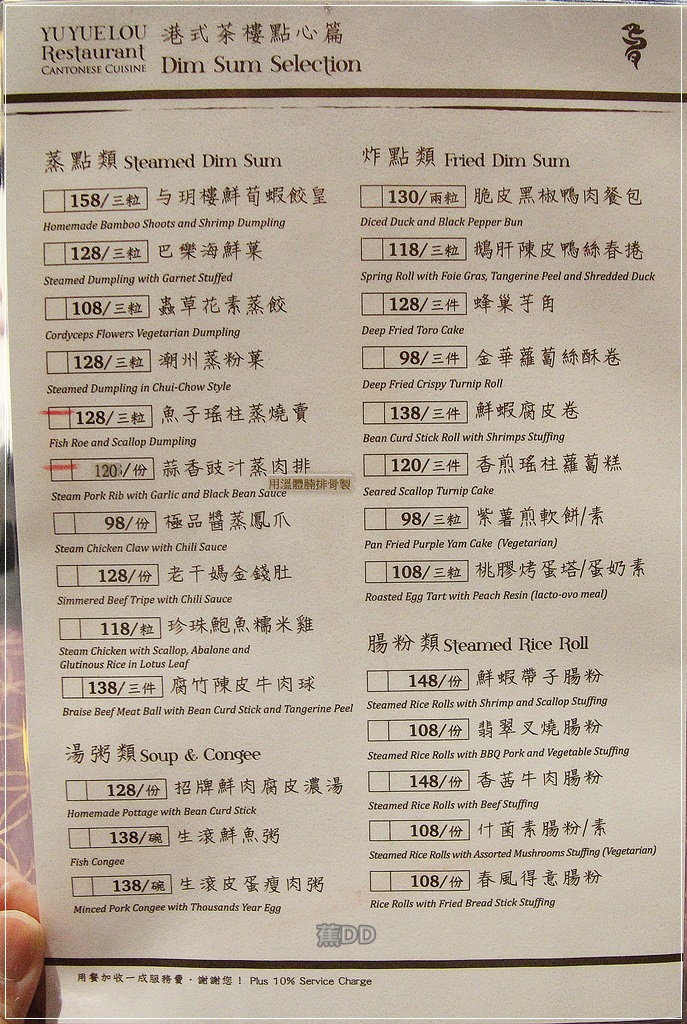 YUYUELOU
Restaurant
CANTONESE CUISINE
港式茶樓點心篇
Dim Sum Selection
蒸點類 Steamed Dim Sum
158/三粒 与玥樓鮮荀蝦餃皇
Homemade Bamboo Shoots and Shrimp Dumpling
128/三粒 巴樂海鮮菓
Steamed Dumpling with Garnet Stuffed
108/三粒 蟲草花素蒸餃
Cordyceps Flowers Vegetarian Dumpling
128/三粒 潮州蒸粉菓
Steamed Dumpling in Chui-Chow Style
128/三粒 魚子瑤柱蒸燒賣
Fish Roe and Scallop Dumpling
120/份 蒜香豉汁蒸肉排
用溫體腩排骨製
Steam Pork Rib with Garlic and Black Bean Sauce
98/份 極品醬蒸鳳爪
Steam Chicken Claw with Chili Sauce
128/份 老干媽金錢肚
Simmered Beef Tripe with Chili Sauce
118/粒 珍珠鮑魚糯米雞
Steam Chicken with Scallop, Abalone and
Glutinous Rice in Lotus Leaf
138/三件 腐竹陳皮牛肉球
Braise Beef Meat Ball with Bean Curd Stick and Tangerine Peel
湯粥類 Soup & Congee
128/份 招牌鮮肉腐皮濃湯
Homemade Pottage with Bean Curd Stick
138/碗 生滾鮮魚粥
Fish Congee
138/碗 生滾皮蛋瘦肉粥
Minced Pork Congee with Thousands Year Egg
炸點類 Fried Dim Sum
130/兩粒 脆皮黑椒鴨肉餐包
Diced Duck and Black Pepper Bun
118/三粒 鵝肝陳皮鴨絲春捲
Spring Roll with Foie Gras, Tangerine Peel and Shredded Duck
128/三件 蜂巢芋角
Deep Fried Toro Cake
98/三件 金華蘿蔔絲酥卷
Deep Fried Crispy Turnip Roll
138/三件 鮮蝦腐皮卷
Bean Curd Stick Roll with Shrimps Stuffing
120/三件 香煎瑤柱蘿蔔糕
Seared Scallop Turnip Cake
98/三粒 紫薯煎軟餅/素
Pan Fried Purple Yam Cake (Vegetarian)
108/三粒 桃膠烤蛋塔/蛋奶素
Roasted Egg Tart with Peach Resin (lacto-ovo meal)
腸粉類 Steamed Rice Roll
148/份 鮮蝦帶子腸粉
Steamed Rice Rolls with Shrimp and Scallop Stuffing
108/份 翡翠叉燒腸粉
Steamed Rice Rolls with BBQ Pork and Vegetable Stuffing
148/份 香茜牛肉腸粉
Steamed Rice Rolls with Beef Stuffing
108/份 什菌素腸粉/素
Steamed Rice Rolls with Assorted Mushrooms Stuffing (Vegetarian)
108/份 春風得意腸粉
Rice Rolls with Fried Bread Stick Stuffing
蕉DD
用餐加收一成服務費，謝謝您！ Plus 10% Service Charge